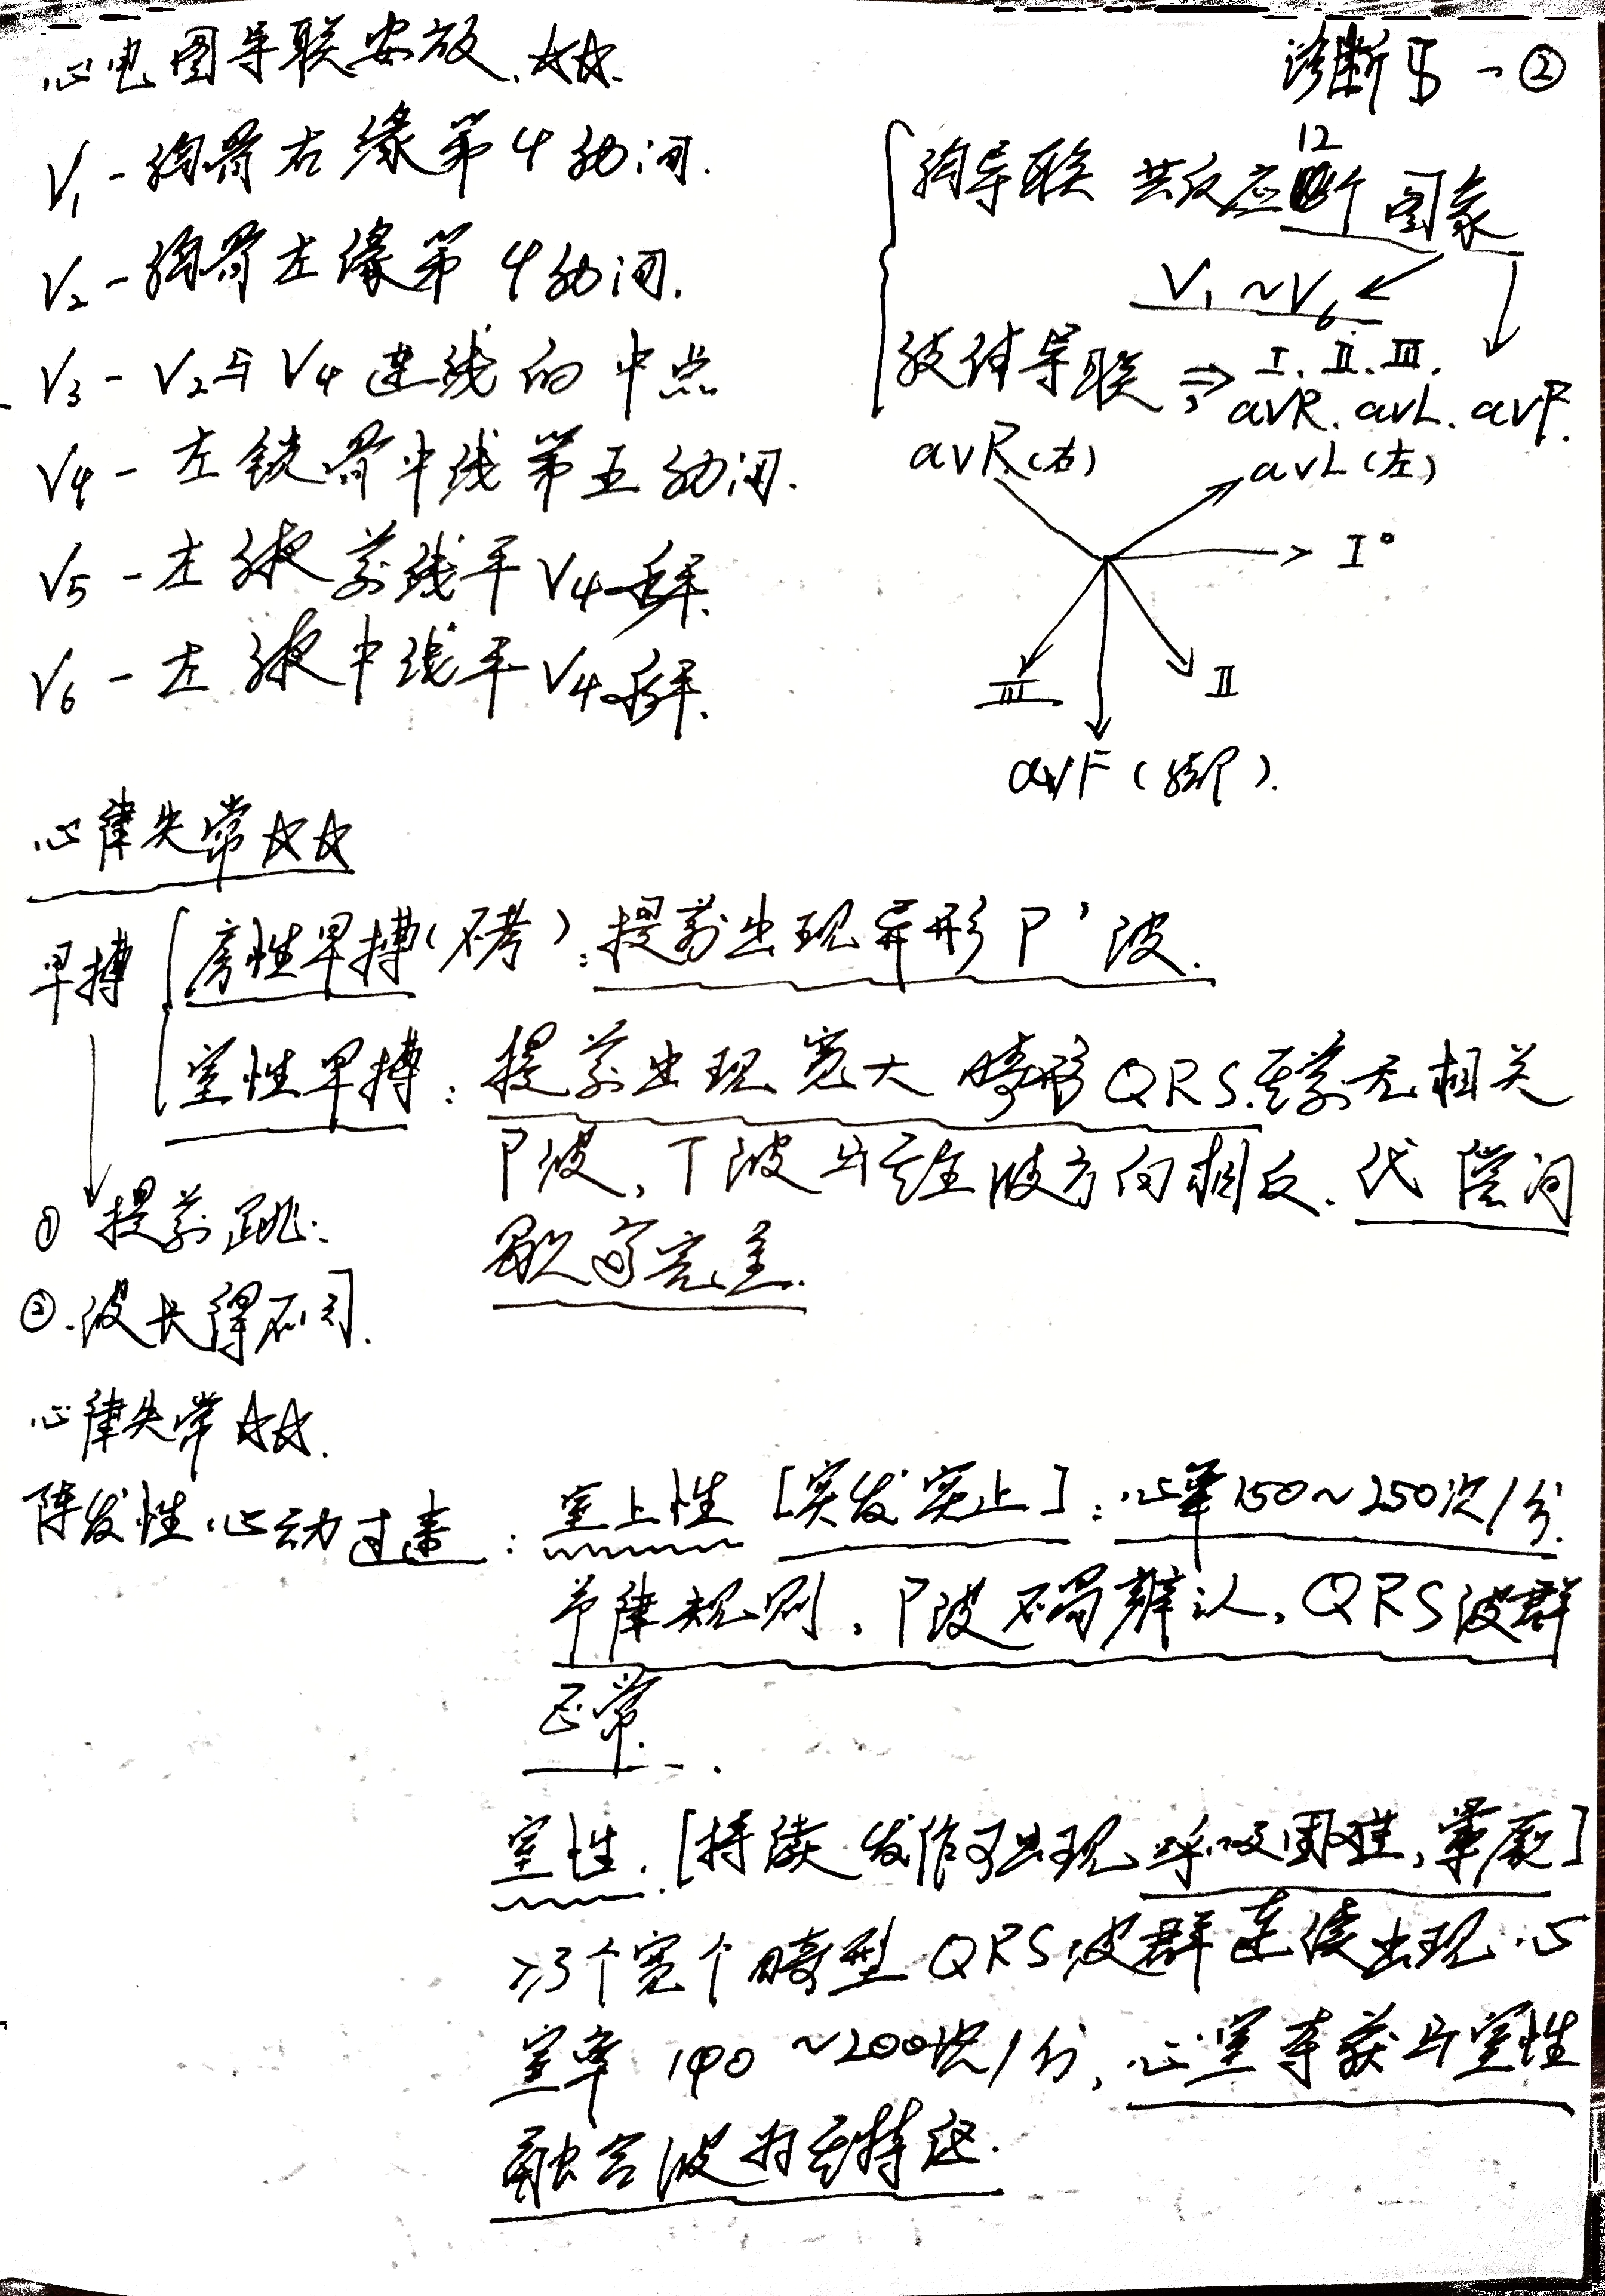 心电图导联安放.☆☆.
诊断 -②
V₁-胸骨右缘第4肋间.
V₂-胸骨左缘第4肋间.
V₃-V₂与V₄连线的中点
V₄-左锁骨中线第五肋间.
V₅-左腋前线平V₄水平.
V₆-左腋中线平V₄水平.
胸导联 共反应12个图象
V₁~V₆
肢体导联⇒ Ⅰ.Ⅱ.Ⅲ.
avR.avL.avF.
avR(右)
avL(左)
Ⅰ°
Ⅲ
Ⅱ
avF(脚).
心律失常☆☆
早搏
房性早搏(不考):提前出现异形P'波.
室性早搏:提前出现宽大畸形QRS.其前无相关
P波,T波与主波方向相反.代偿间
歇完全.
①提前跳.
②.波长得不同.
心律失常☆☆.
阵发性心动过速:室上性[突发突止]:心率150~250次/分.
节律规则,P波不易辨认,QRS波群
正常.
室性.[持续发作可出现呼吸困难,晕厥]
≥3个宽个畸型QRS波群连续出现.心
室率140~200次/分,心室夺获与室性
融合波为其特征.